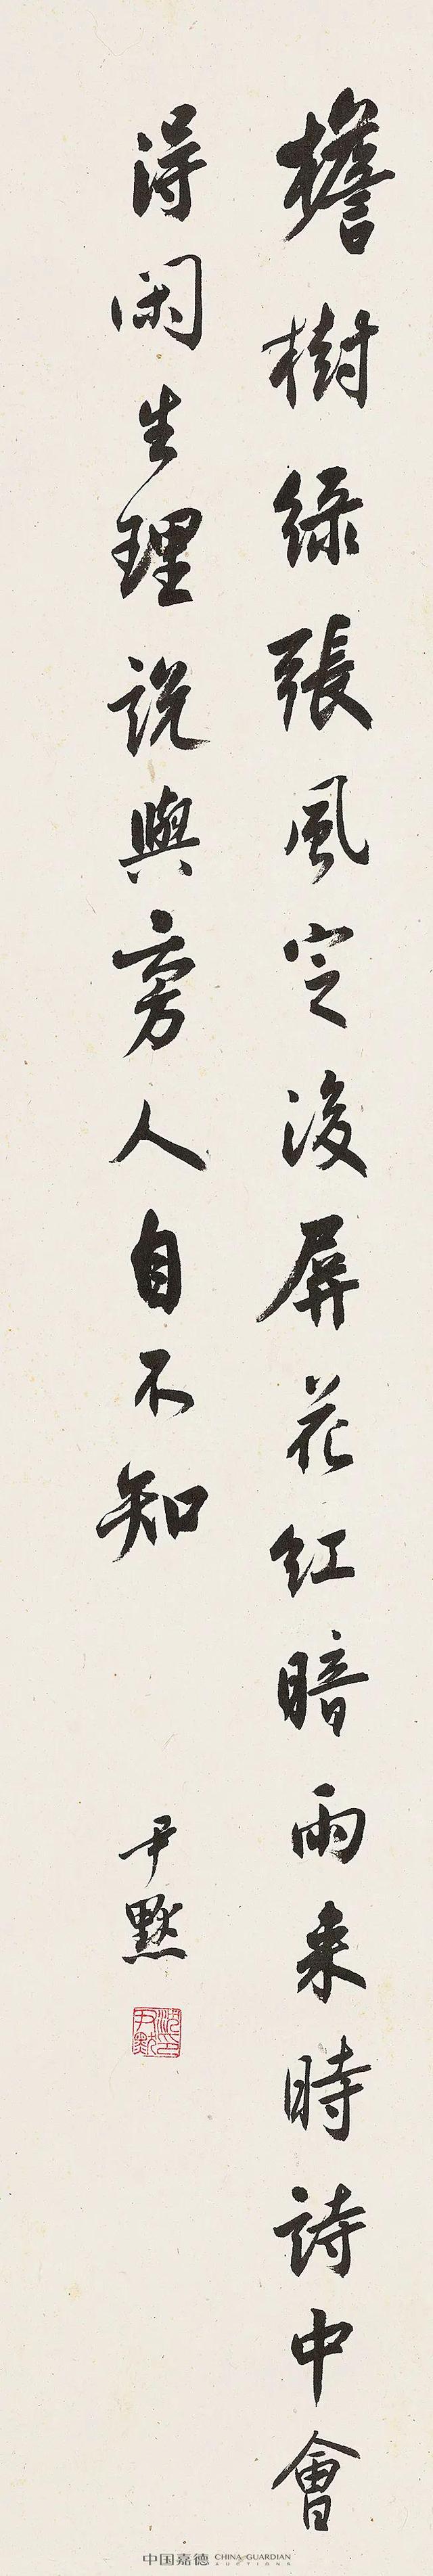 檐樹綠張風定後屏花紅暗雨来時詩中會
得閑生理説與旁人自不知
尹默
沈尹默印
中国嘉德 CHINA GUARDIAN AUCTIONS